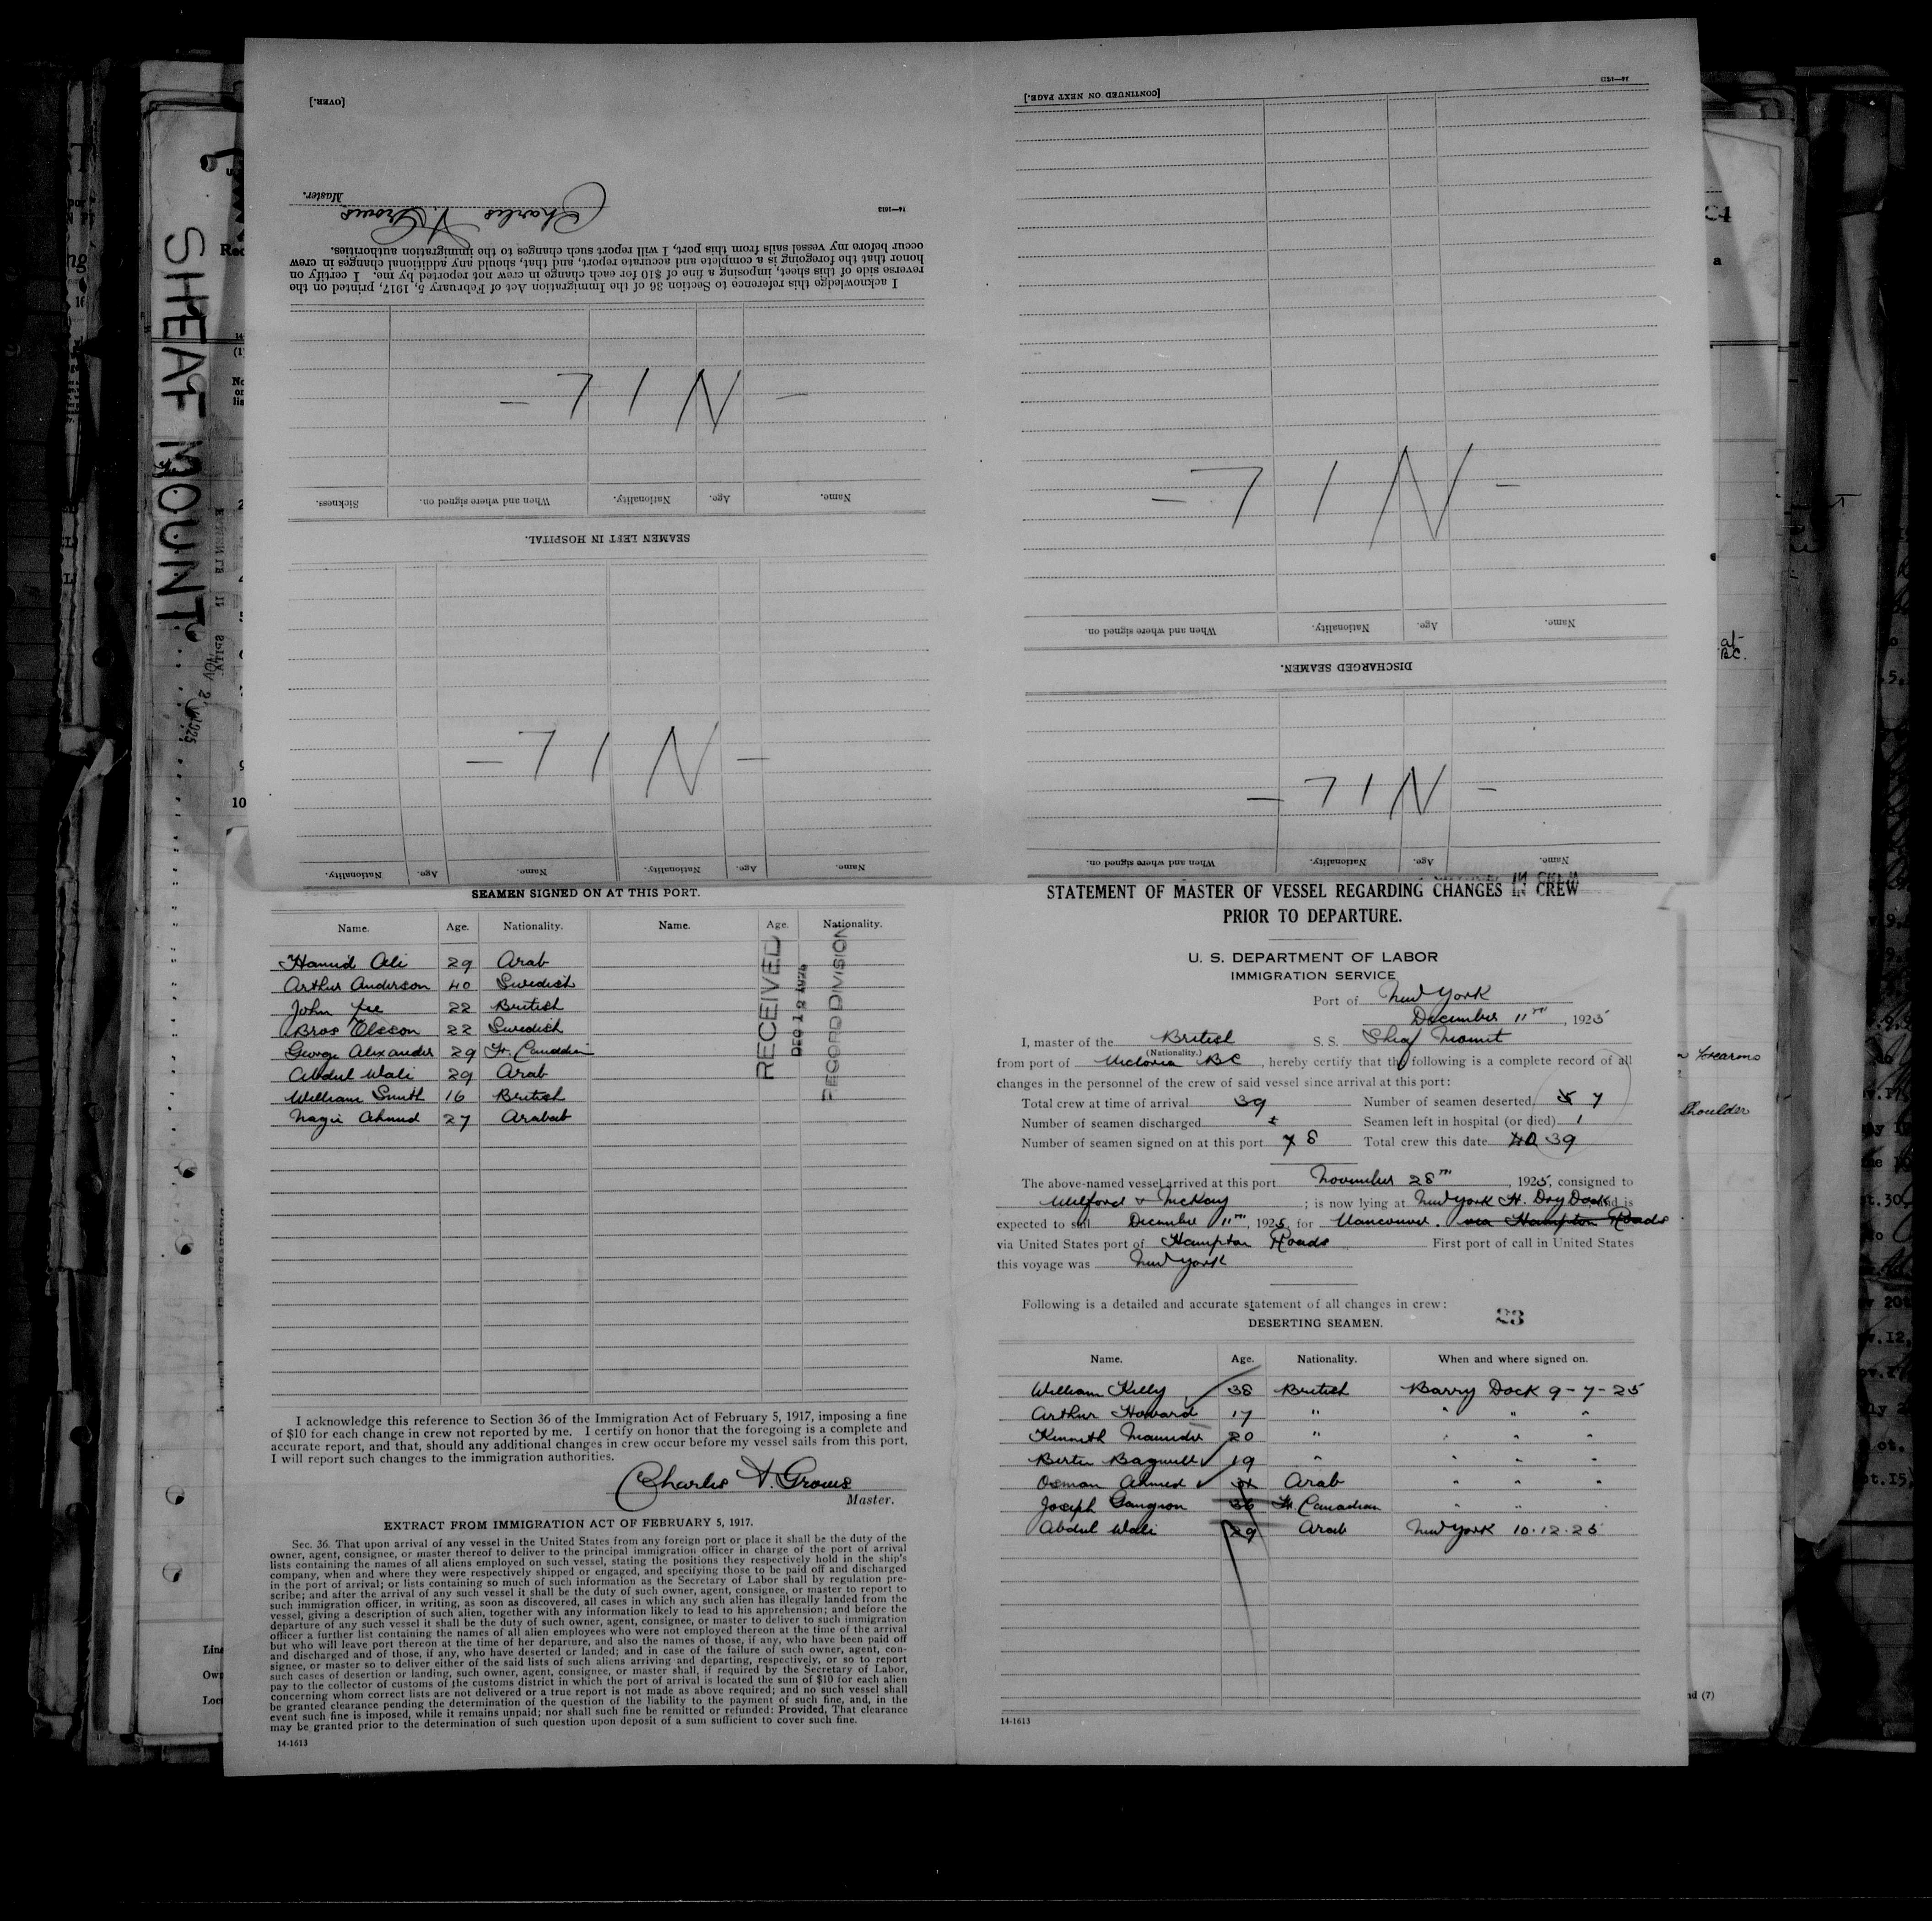 [OVER.]
Master.
Charles A. Groves
14—1613
I acknowledge this reference to Section 36 of the Immigration Act of February 5, 1917, printed on the
reverse side of this sheet, imposing a fine of $10 for each change in crew not reported by me. I certify on
honor that the foregoing is a complete and accurate report, and that, should any additional changes in crew
occur before my vessel sails from this port, I will report such changes to the immigration authorities.
- N I L -
Name. Age. Nationality. When and where signed on. Sickness.
SEAMEN LEFT IN HOSPITAL.
- N I L -
Name. Age. Nationality. Name. Age. Nationality.
[CONTINUED ON NEXT PAGE.]
- N I L -
Name. Age. Nationality. When and where signed on.
DISCHARGED SEAMEN.
- N I L -
Name. Age. Nationality. When and where signed on.
SHEAF MOUNT
SEAMEN SIGNED ON AT THIS PORT.
Name. Age. Nationality. Name. Age. Nationality.
Hamid Ali 29 Arab
Arthur Anderson 40 Swedish
John 22 British
Olsson 22 Swedish
George Alexander 29 Fr. Canadian
Abdul Wali 29 Arab
William Smith 16 British
Nagi Ahmed 27 Arab
RECEIVED
DEC 12
RECORD DIVISION
I acknowledge this reference to Section 36 of the Immigration Act of February 5, 1917, imposing a fine
of $10 for each change in crew not reported by me. I certify on honor that the foregoing is a complete and
accurate report, and that, should any additional changes in crew occur before my vessel sails from this port,
I will report such changes to the immigration authorities.
Charles A. Groves
Master.
EXTRACT FROM IMMIGRATION ACT OF FEBRUARY 5, 1917.
Sec. 36. That upon arrival of any vessel in the United States from any foreign port or place it shall be the duty of the
owner, agent, consignee, or master thereof to deliver to the principal immigration officer in charge of the port of arrival
lists containing the names of all aliens employed on such vessel, stating the positions they respectively hold in the ship's
company, when and where they were respectively shipped or engaged, and specifying those to be paid off and discharged
in the port of arrival; or lists containing so much of such information as the Secretary of Labor shall by regulation pre-
scribe; and after the arrival of any such vessel it shall be the duty of such owner, agent, consignee, or master to report to
such immigration officer, in writing, as soon as discovered, all cases in which any such alien has illegally landed from the
vessel, giving a description of such alien, together with any information likely to lead to his apprehension; and before the
departure of any such vessel it shall be the duty of such owner, agent, consignee, or master to deliver to such immigration
officer a further list containing the names of all alien employees who were not employed thereon at the time of the arrival
but who will leave port thereon at the time of her departure, and also the names of those, if any, who have been paid off
and discharged and of those, if any, who have deserted or landed; and in case of the failure of such owner, agent, con-
signee, or master so to deliver either of the said lists of such aliens arriving and departing, respectively, or so to report
such cases of desertion or landing, such owner, agent, consignee, or master shall, if required by the Secretary of Labor,
pay to the collector of customs of the customs district in which the port of arrival is located the sum of $10 for each alien
concerning whom correct lists are not delivered or a true report is not made as above required; and no such vessel shall
be granted clearance pending the determination of the question of the liability to the payment of such fine, and, in the
event such fine is imposed, while it remains unpaid; nor shall such fine be remitted or refunded: Provided, That clearance
may be granted prior to the determination of such question upon deposit of a sum sufficient to cover such fine.
14-1613
STATEMENT OF MASTER OF VESSEL REGARDING CHANGES IN CREW
PRIOR TO DEPARTURE.
U. S. DEPARTMENT OF LABOR
IMMIGRATION SERVICE
Port of New York
December 11th, 1925
I, master of the British S. S. Sheaf Mount
(Nationality.)
from port of Victoria BC, hereby certify that the following is a complete record of all
changes in the personnel of the crew of said vessel since arrival at this port:
Total crew at time of arrival 39 Number of seamen deserted 7
Number of seamen discharged Seamen left in hospital (or died) 1
Number of seamen signed on at this port 7 8 Total crew this date 40 39
The above-named vessel arrived at this port November 28th, 1925, consigned to
Milford & McKay ; is now lying at New York Ft. Dry Dock and is
expected to sail December 11th, 1925, for Vancouver. via Hampton Roads
via United States port of Hampton Roads First port of call in United States
this voyage was New York
Following is a detailed and accurate statement of all changes in crew:
23
DESERTING SEAMEN.
Name. Age. Nationality. When and where signed on.
William Kelly 38 British Barry Dock 9-7-25
Arthur Howard 17 " " " "
Kenneth Maunder 20 " " " "
Bertie Bagwell 19 " " " "
Osman Ahmed Arab " " "
Joseph Gangnon 36 Fr. Canadian " " "
Abdul Wali 29 Arab New York 10.12.25
14-1613